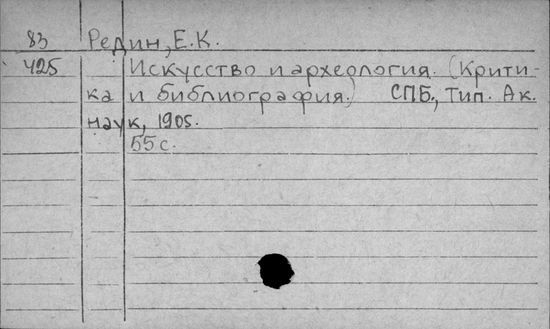 83 Редин, Е.К.
425 Искусство и археология. (Крити-
ка и библиография.) СПБ., тип. Ак.
наук, 1905.
55 с.